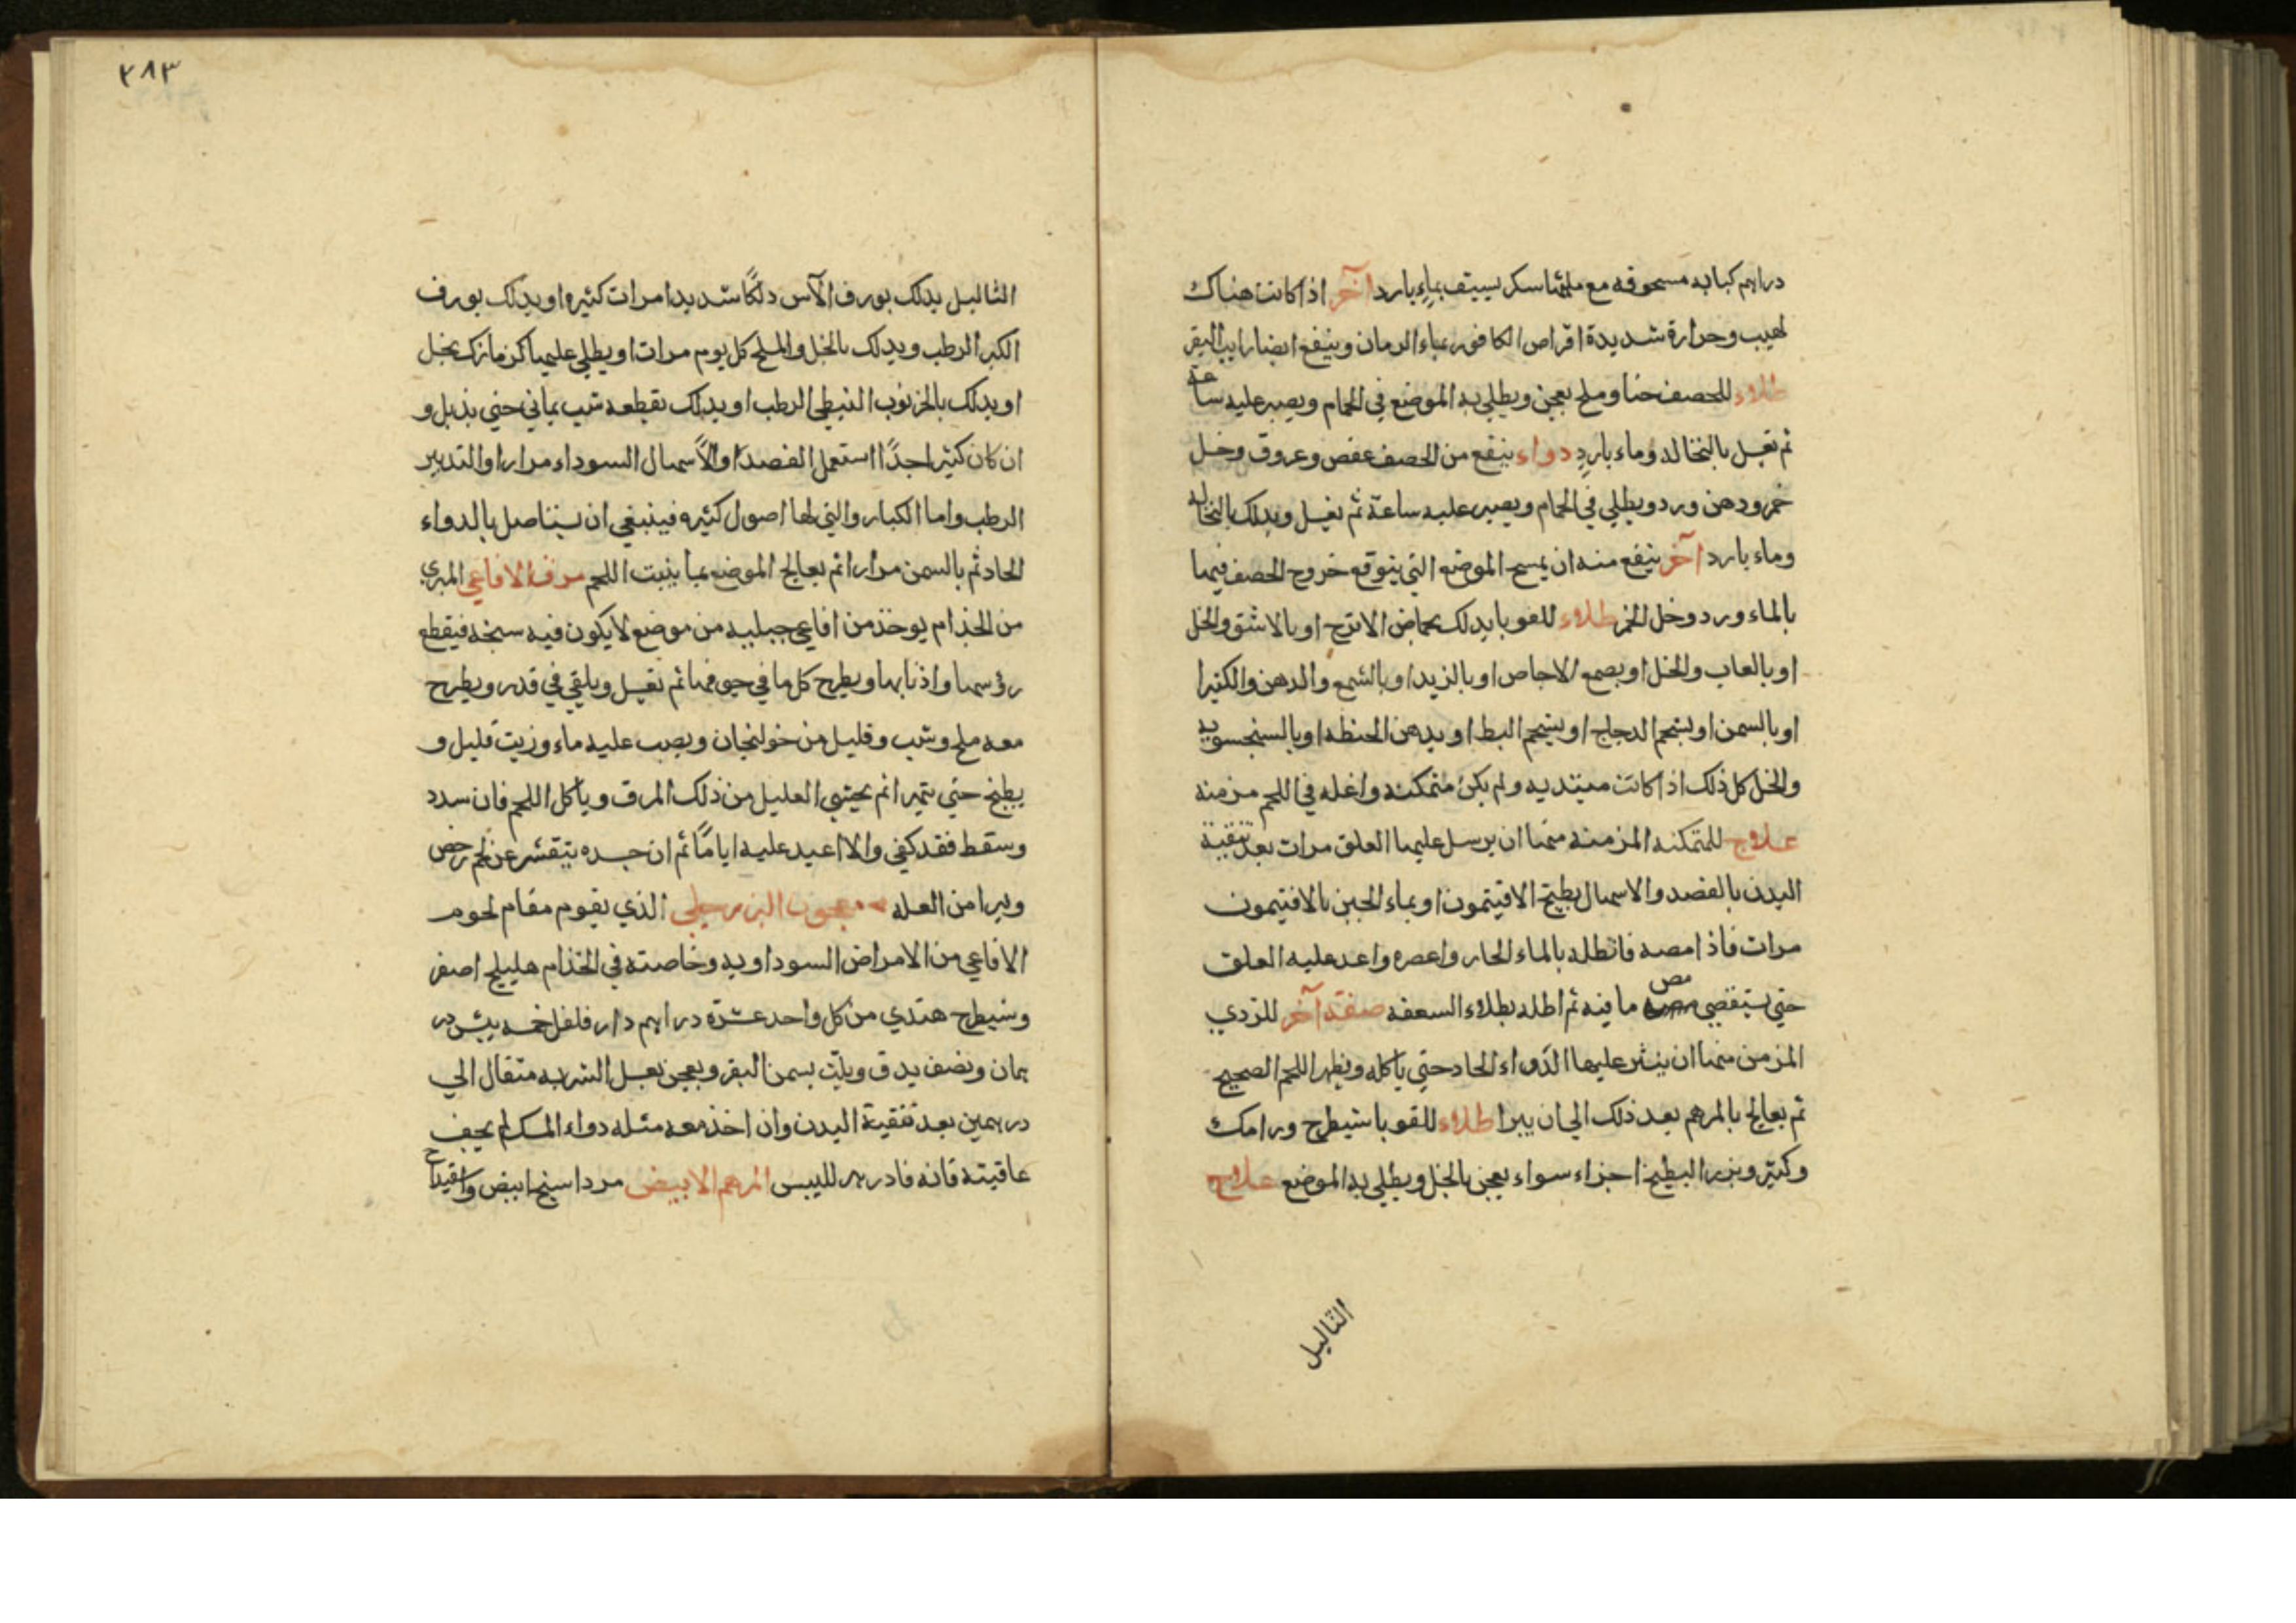 دراهم كبابه مسحوقه مع مثلها سكر يستف بماء بارد آخر اذا كانت هناك
لهيب وحرارة شديدة اقراص الكافور بماء الرمان وينفع ايضا رايب البقر
طلاء للحصف حنا وملح يعجن ويطلي به الموضع في الحمام ويصبر عليه ساعة
ثم يغسل بالنخاله وماء بارد دواء ينفع من الحصف عفص وعروق وخل
خمر ودهن ورد ويطلي في الحمام ويصبر عليه ساعة ثم يغسل ويدلك بالنخاله
وماء بارد آخر ينفع منه ان يمسح الموضع التي يتوقع خروج الحصف فيها
بالماء ورد وخل الخمر طلاء للقوبا يدلك بحماض الاترج او بالاشق والخل
او بالعاب والخل او بصمع الاجاص او بالزبد او بالشمع والدهن والكثيرا
او بالسمن او بشحم الدجاج او بشحم البط او بدهن الحنطه او بالسنجسويه
والخل كل ذلك اذا كانت مبتديه ولم يكن متمكنه واغله في اللحم مزمنه
علاج للمتمكنه المزمنه منها ان يرسل عليها العلق مرات بعد تنقية
البدن بالفصد والاسهال بطبيخ الافيتمون او بماء الجبن بالافتيمون
مرات فاذا مصه فانطله بالماء الحار واعصره واعد عليه العلق
حتي يستقصي مص ما فيه ثم اطله بطلاء السعفه صفة آخر للردي
المزمن منها ان ينثر عليها الدواء الحاد حتي ياكله ويظهر اللحم الصحيح
ثم يعالج بالمرهم بعد ذلك الي ان يبرا طلاء للقوبا شيطرج ورامك
وكبر وبزر البطيخ اجزاء سواء يعجن بالخل ويطلي به الموضع علاج
الثاليل
٣٨٣
الثاليل يدلك بورق الآس دلكًا شديدا مرات كثيره او يدلك بورق
الكبر الرطب ويدلك بالخل والملح كل يوم مرات او يطلي عليها كزمازك بخل
او يدلك بالخرنوب النبطي الرطب او يدلك بقطعه شب يماني حتي يذبل و
ان كان كثيرا جدًا استعمل الفصد او الاسهال السوداء مرارا والتدبير
الرطب واما الكبار والتي لها اصول كثيره فينبغي ان يستاصل بالدواء
الحاد ثم بالسمن مرارا ثم يعالج الموضع بما ينبت اللحم مرق الافاعي المبري
من الجذام يوخذ من افاعي جبليه من موضع لا يكون فيه سبخه فيقطع
رؤسها واذنابها ويطرح كل ما في جوفها ثم يغسل ويلقي في قدر ويطرح
معه ملح وشب وقليل من خولنجان ويصب عليه ماء وزيت قليل و
يطبخ حتي يتهرا ثم يحتسي العليل من ذلك المرق وياكل اللحم فان سدد
وسقط فقد كفي والا اعيد عليه ايامًا ثم ان جسده يتقشر عن لحم رخص
ويبرا من العله معجون البزرجلي الذي يقوم مقام لحوم
الافاعي من الامراض السوداويه وخاصته في الجذام هليلج اصفر
وشيطرج هندي من كل واحد عشرة دراهم دار فلفل خمسه بيش در
همان ونصف يدق ويلت بسمن البقر ويعجن بعسل الشربه مثقال الي
درهمين بعد تنقية البدن وان اخذ معه مثله دواء المسك لم يخف
عاقبته فانه فادزهر للبيس المرهم الابيض مرداسنج ابيض واسفيداج